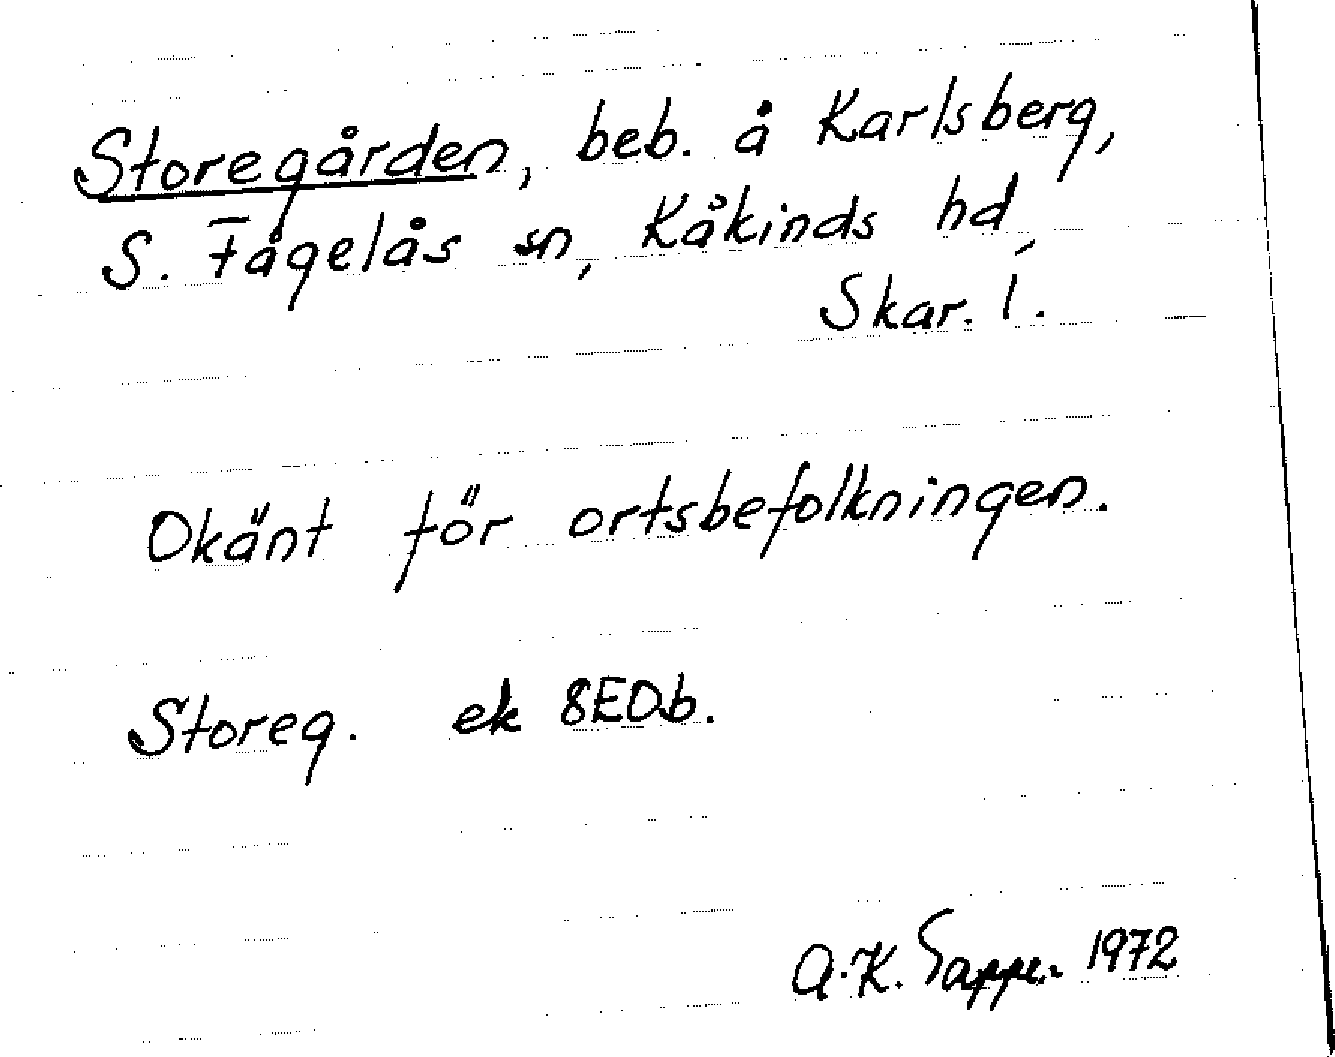 Storegården, beb. å Karlsberg,
S. Fågelås sn, Kåkinds hd,
Skar. l.
Okänt för ortsbefolkningen.
Storeg. ek 8E0b.
A.K. 1972